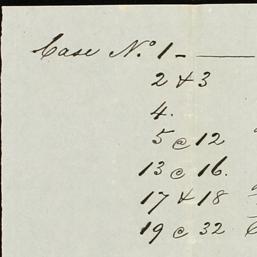 Case No. 1 -
2 & 3
4.
5 @ 12
13 @ 16.
17 & 18
19 @ 32